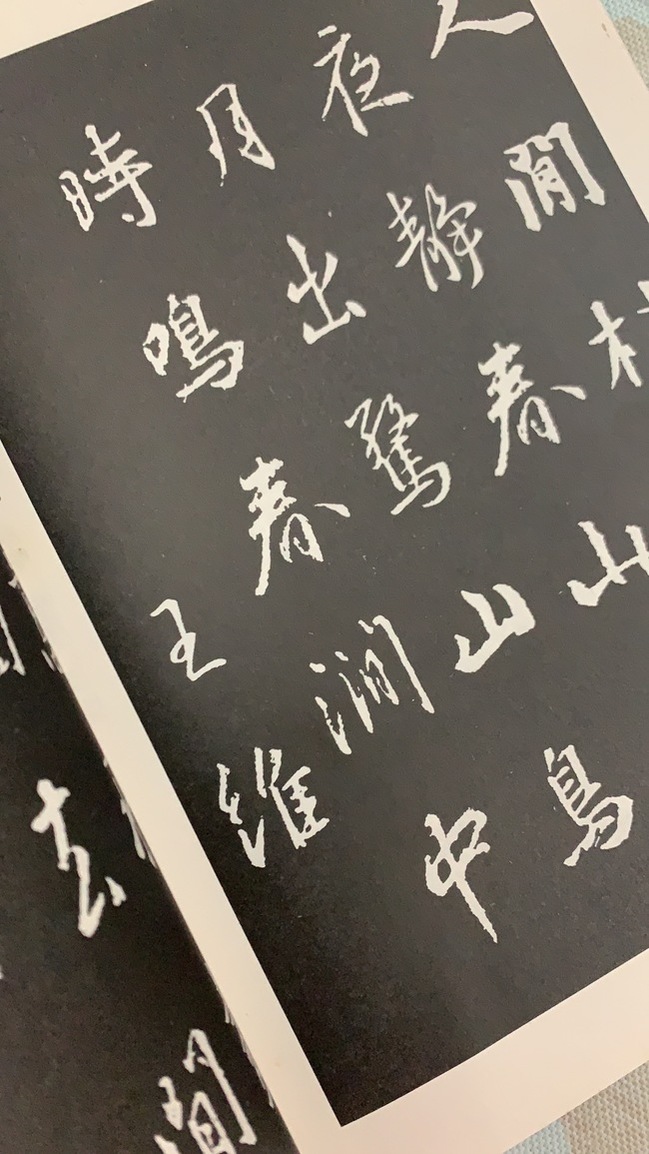 人閒
夜靜春山
月出驚山鳥
時鳴春澗中
王維
去